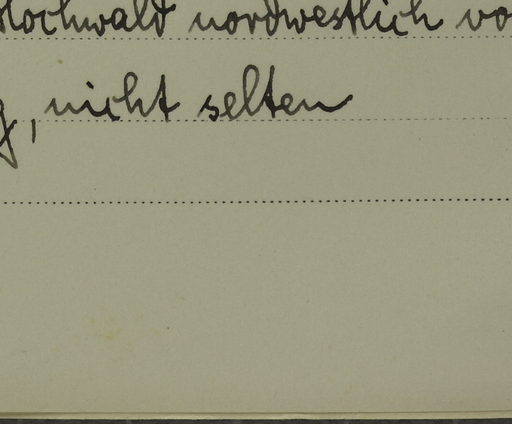 Hochwald nordwestlich vo
g, nicht selten